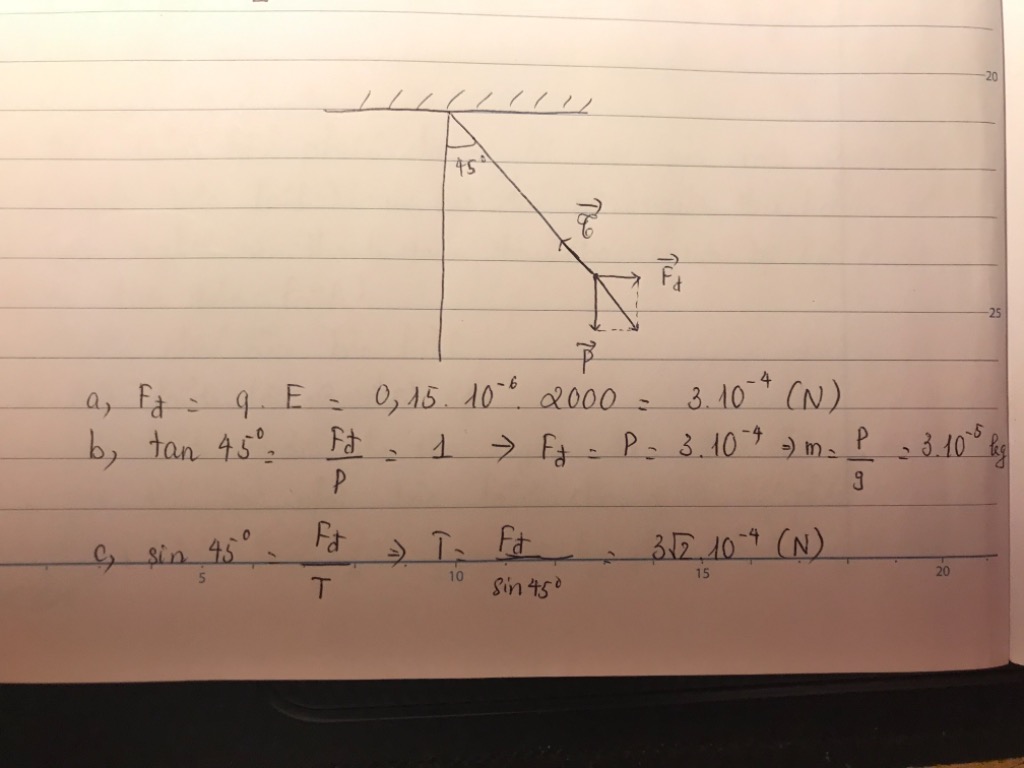 20
45°
τ⃗
F⃗đ
25
P⃗
a, Fđ = q . E = 0,15 . 10⁻⁶ . 2000 = 3.10⁻⁴ (N)
b, tan 45° = Fđ/P = 1 → Fđ = P = 3.10⁻⁴ ⇒ m = P/g = 3.10⁻⁵ kg
c, sin 45° = Fđ/T ⇒ T = Fđ/sin 45° = 3√2.10⁻⁴ (N)
5 10 15 20